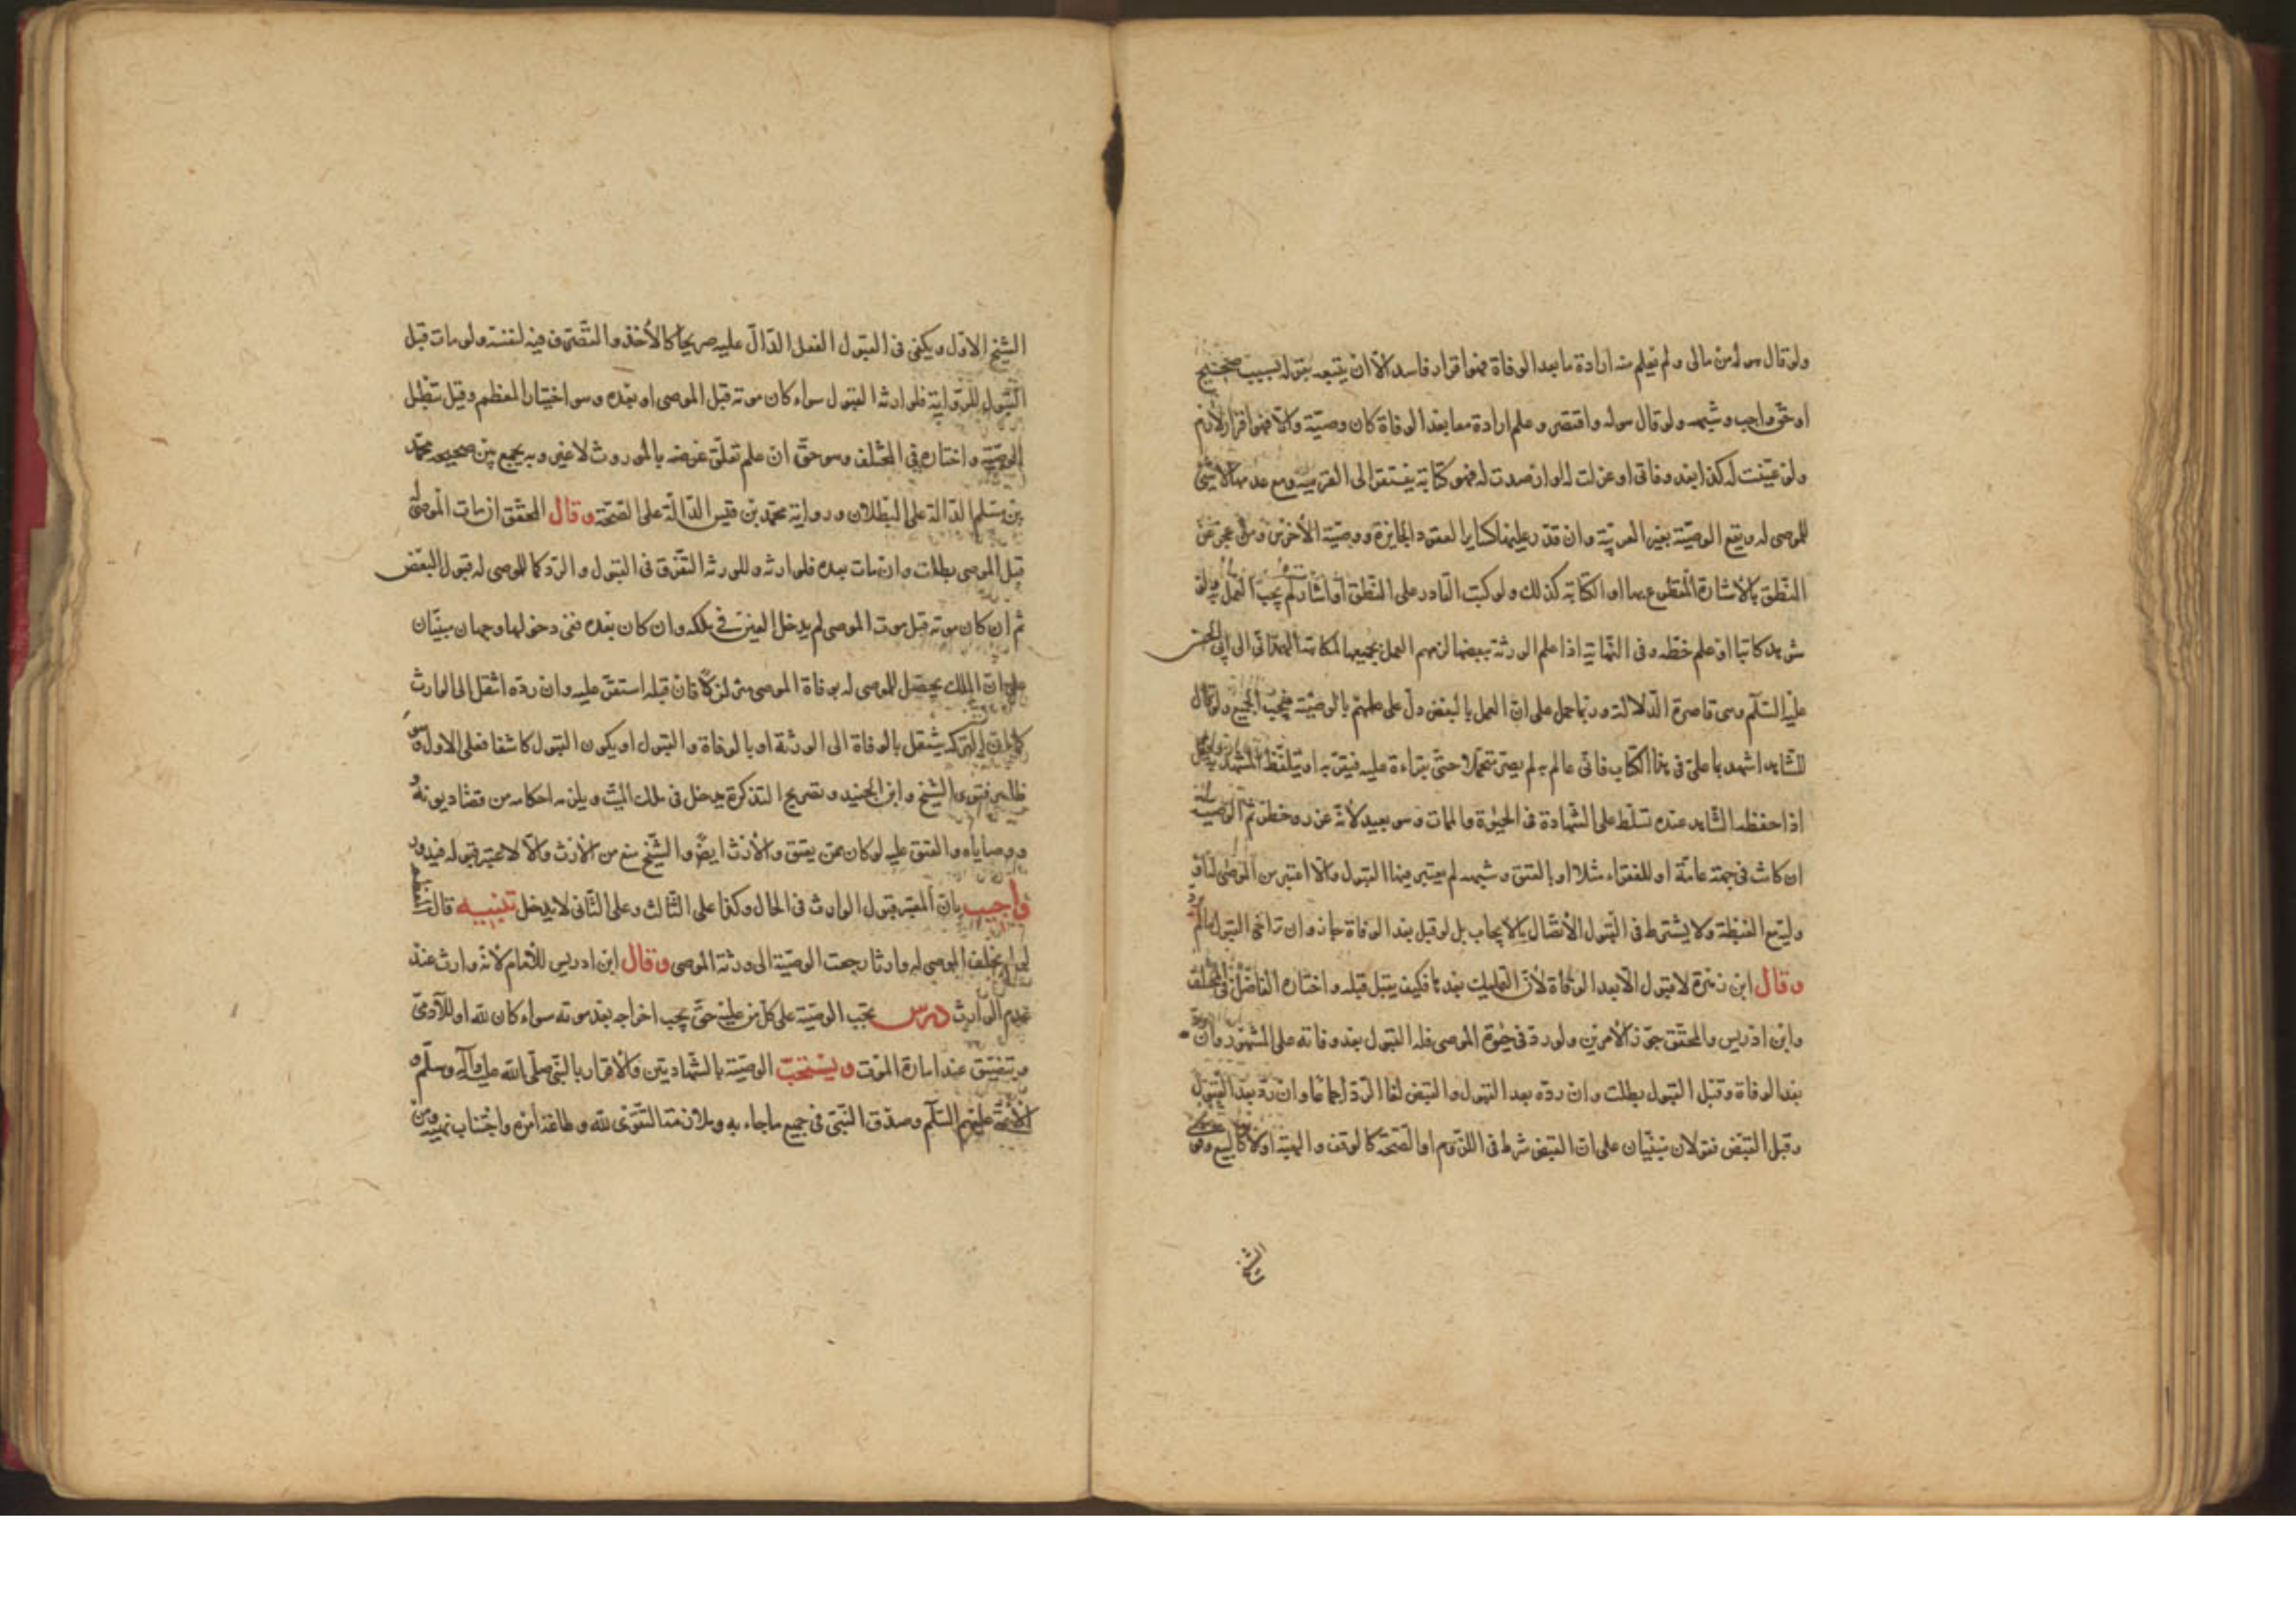 ولو قال هو له من مالى ولم يعلم منه ارادة ما بعد الوفاة فهو اقرار فاسد الا ان يتبعه بقوله بسبب صحيح
او حق واجب وشبهه ولو قال هو له واقتصر وعلم ارادة معا بعد الوفاة كان وصية والا فهو اقرار لازم
ولو عينت له كذا بعد وفاتى او عزلت له او ارصدت له فهو كناية يفتقر الى القرينة ومع عدمها لا شئ
للموصى له ويقع الوصية بغير العربية وان قدر عليها كساير العقود الجايزة ووصية الأخرس ومن عجز عن
النطق بالاشارة المقطوع بها او الكتابة كذلك ولو كتب القادر على النطق او اشار لم يجب العمل به ولو
شوهد كاتبا او علم خطه وفى النهاية اذا علم الورثة ببعضها لزمهم العمل بجميعها لمكاتبة الهمدانى الى ابى الحسن
عليه السلم وهى قاصرة الدلالة وربما حمل على ان العمل بالبعض دل على علمهم بالوصية فيجب الجميع ولو قال
للشاهد اشهد باعلى فى هذا الكتاب فانى عالم به لم يصر متحملا حتى يقراءه عليه فيقر به او يتلفظ المشهد به وقيل
اذا حفظه الشاهد عنده تسلط على الشهادة فى الحيوة والممات وهو بعيد لأنه عن روخطر ثم الوصية
ان كانت فى جهة عامة او للفقراء مثلا او بالعتق وشبهه لم يعتبر فيها القبول والا اعتبر من الموصى له او
وليه مع الغبطة ولا يشترط فى القبول الأتصال بالايجاب بل لو قبل بعد الوفاة جاز وان تراخى القبول مالم يرد
وقال ابن زهرة لا قبول الا بعد الوفاة لأن التمليك بعدها فكيف يقبل قبله واختاره الفاضل فى المختلف
وابن ادريس والمحقق جوز الامرين ولو رد فى حيوة الموصى فله القبول بعد وفاته على المشهور وان رد
بعد الوفاة وقبل القبول بطلت وان رده بعد القبول والقبض لغا الرد اجماعا وان رد بعد القبول
وقبل القبض فقولان مبنيان على ان القبض شرط فى اللزوم او الصحة كالوقف والهبة اولا كالبيع وهو فتوى
الشيخ
الشيخ الاول ويكفى فى القبول الفعل الدال عليه صريحا كالأخذ والتصرف فيه لنفسه ولو مات قبل
القبول للرواية فلوارثه القبول سواء كان موته قبل الموصى او بعده وهو اختيار المعظم وقيل تبطل
الوصية واختاره فى المختلف وهو حق ان علم تعلق غرضه بالموروث لا غير وبه يجمع بين صحيحه محمد
بن مسلم الدالة على البطلان ورواية محمد بن قيس الدالة على الصحة وقال المحقق ان مات الموصى له
قبل الموصى بطلت وان مات بعده فلوارثه وللورثة التفرق فى القبول والرد كما للموصى له قبول البعض
ثم ان كان موته قبل موت الموصى لم يدخل العين فى ملكه وان كان بعده ففى دخولها وجهان مبنيان
على ان الملك يحصل للموصى له بوفاة الموصى متزلزلا فان قبله استقر عليه وان رده انتقل الى الوارث
كما ان التركة ينتقل بالوفاة الى الورثة او بالوفاة والقبول او يكون القبول كاشفا فعلى الاول وهو
ظاهر فتوى الشيخ وابن الجنيد وتصريح التذكرة يدخل فى ملك الميت ويلزمه احكامه من قضاء ديونه
ووصاياه والعتق عليه لو كان ممن يعتق والأرث ايضا والشيخ منع من الأرث والا لاعتبر قبوله فيدور
واجيب بان المعتبر قبول الوارث فى الحال وكذا على الثالث وعلى الثانى لا يدخل تنبيه قال معظم
لو لم يخلف الموصى له وارثا رجعت الوصية الى ورثة الموصى وقال ابن ادريس للأمام لأنه وارث عند
عدم الوارث درس يجب الوصية على كل من عليه حق يجب اخراجه بعد موته سواء كان لله او للآدمى
ويتضيق عند امارة الموت ويستحب الوصية بالشهادتين والاقرار بالنبى صلى الله عليه وآله وسلم و
الأئمة عليهم السلم وصدق النبى فى جميع ما جاء به وملازمة التقوى لله وطاعة امره واجتناب نهيه ومن